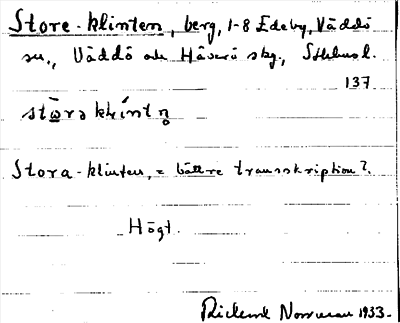 Store-klinten, berg, 1-8 Edeby, Väddö
sn., Väddö och Häverö skg., Sthlms l.
137
stòra klínt n̥
Stora-klinten, = bättre transskription?
Högt.
Rickard 1933.